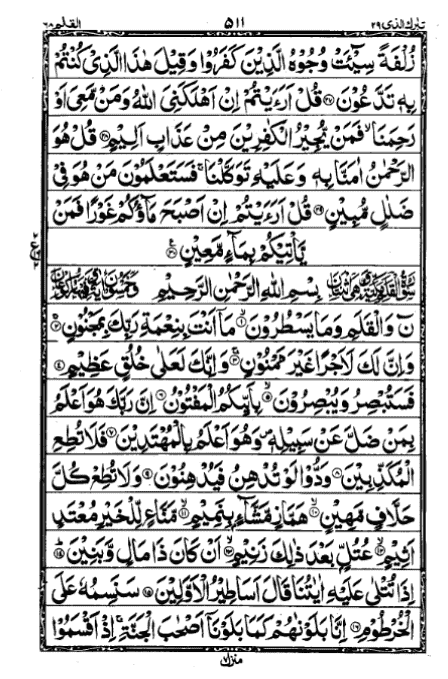 تبارك الذى ٢٩ ٥١١ القلم ٦٨
زُلْفَةً سِيْٓـَٔتْ وُجُوْهُ الَّذِيْنَ كَفَرُوْا وَقِيْلَ هٰذَا الَّذِيْ كُنْتُمْ
بِهٖ تَدَّعُوْنَ ﴿٢٧﴾ قُلْ اَرَءَيْتُمْ اِنْ اَهْلَكَنِيَ اللّٰهُ وَمَنْ مَّعِيَ اَوْ
رَحِمَنَا ۙ فَمَنْ يُّجِيْرُ الْكٰفِرِيْنَ مِنْ عَذَابٍ اَلِيْمٍ ﴿٢٨﴾ قُلْ هُوَ
الرَّحْمٰنُ اٰمَنَّا بِهٖ وَعَلَيْهِ تَوَكَّلْنَا ۚ فَسَتَعْلَمُوْنَ مَنْ هُوَ فِيْ
ضَلٰلٍ مُّبِيْنٍ ﴿٢٩﴾ قُلْ اَرَءَيْتُمْ اِنْ اَصْبَحَ مَآؤُكُمْ غَوْرًا فَمَنْ
يَّاْتِيْكُمْ بِمَآءٍ مَّعِيْنٍ ﴿٣٠﴾
بِسْمِ اللّٰهِ الرَّحْمٰنِ الرَّحِيْمِ
نٓ وَالْقَلَمِ وَمَا يَسْطُرُوْنَ ﴿١﴾ مَآ اَنْتَ بِنِعْمَةِ رَبِّكَ بِمَجْنُوْنٍ ﴿٢﴾
وَاِنَّ لَكَ لَاَجْرًا غَيْرَ مَمْنُوْنٍ ﴿٣﴾ وَاِنَّكَ لَعَلٰى خُلُقٍ عَظِيْمٍ ﴿٤﴾
فَسَتُبْصِرُ وَيُبْصِرُوْنَ ﴿٥﴾ بِاَيِّىكُمُ الْمَفْتُوْنُ ﴿٦﴾ اِنَّ رَبَّكَ هُوَ اَعْلَمُ
بِمَنْ ضَلَّ عَنْ سَبِيْلِهٖ وَهُوَ اَعْلَمُ بِالْمُهْتَدِيْنَ ﴿٧﴾ فَلَا تُطِعِ
الْمُكَذِّبِيْنَ ﴿٨﴾ وَدُّوْا لَوْ تُدْهِنُ فَيُدْهِنُوْنَ ﴿٩﴾ وَلَا تُطِعْ كُلَّ
حَلَّافٍ مَّهِيْنٍ ﴿١٠﴾ هَمَّازٍ مَّشَّآءٍۭ بِنَمِيْمٍ ﴿١١﴾ مَّنَّاعٍ لِّلْخَيْرِ مُعْتَدٍ
اَثِيْمٍ ﴿١٢﴾ عُتُلٍّۭ بَعْدَ ذٰلِكَ زَنِيْمٍ ﴿١٣﴾ اَنْ كَانَ ذَا مَالٍ وَّبَنِيْنَ ﴿١٤﴾
اِذَا تُتْلٰى عَلَيْهِ اٰيٰتُنَا قَالَ اَسَاطِيْرُ الْاَوَّلِيْنَ ﴿١٥﴾ سَنَسِمُهٗ عَلَى
الْخُرْطُوْمِ ﴿١٦﴾ اِنَّا بَلَوْنٰهُمْ كَمَا بَلَوْنَآ اَصْحٰبَ الْجَنَّةِ ۚ اِذْ اَقْسَمُوْا
منزل ٧